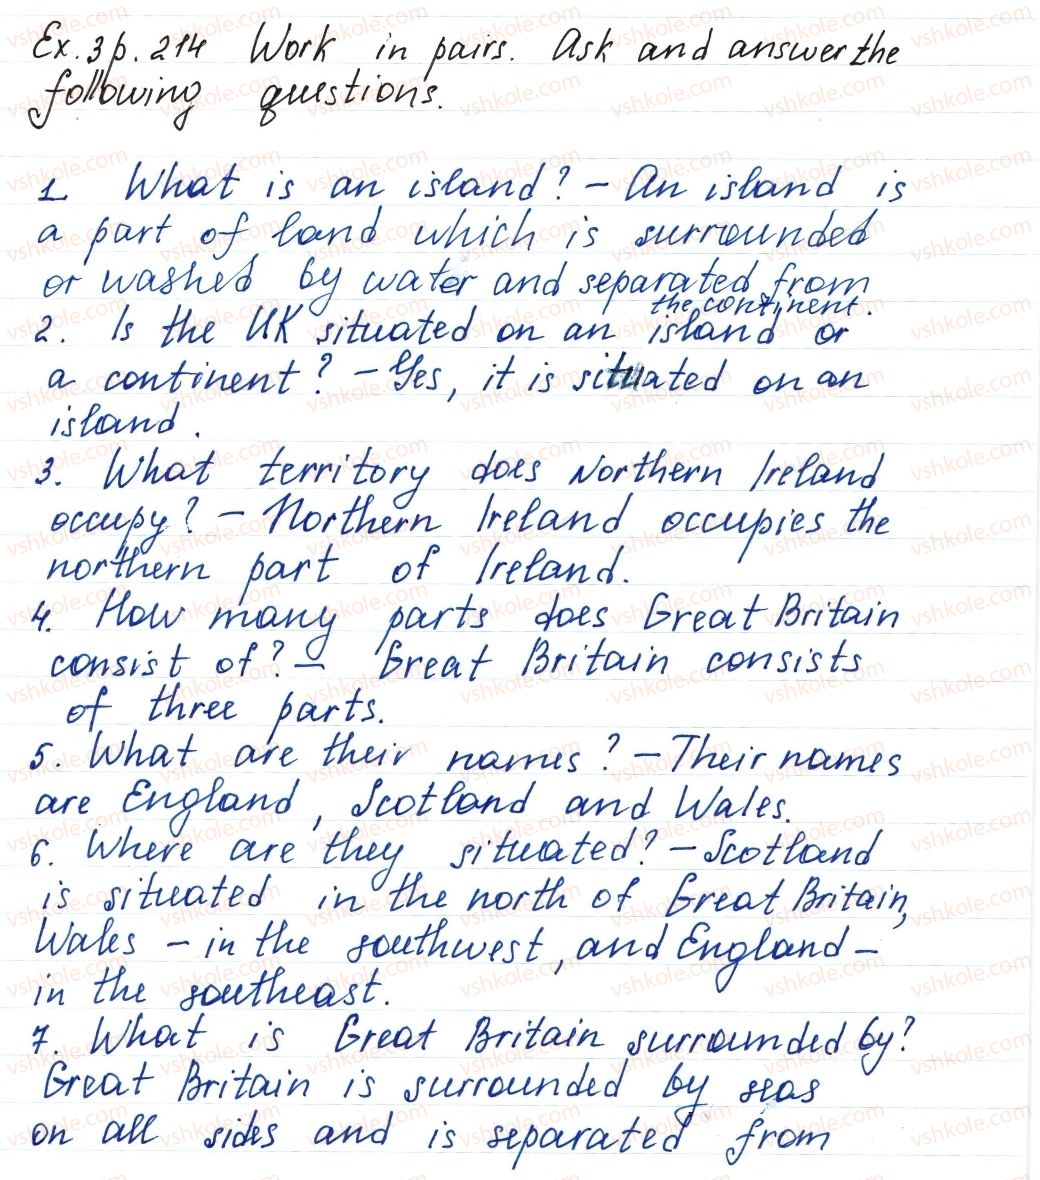 Ex. 3 p. 214 Work in pairs. Ask and answer the
following questions.
1. What is an island? – An island is
a part of land which is surrounded
or washed by water and separated from
the continent.
2. Is the UK situated on an island or
a continent? – Yes, it is situated on an
island.
3. What territory does Northern Ireland
occupy? – Northern Ireland occupies the
northern part of Ireland.
4. How many parts does Great Britain
consist of? – Great Britain consists
of three parts.
5. What are their names? – Their names
are England, Scotland and Wales.
6. Where are they situated? – Scotland
is situated in the north of Great Britain,
Wales – in the southwest, and England –
in the southeast.
7. What is Great Britain surrounded by?
Great Britain is surrounded by seas
on all sides and is separated from